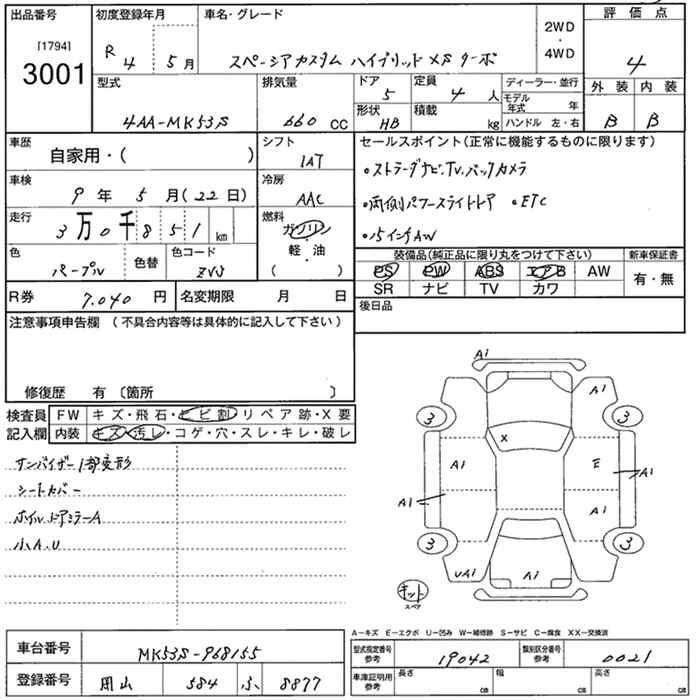 出品番号 初度登録年月 車名・グレード 2WD ・ 4WD 評価点
[1794]
3001 R 4 5月 スペーシアカスタム ハイブリッドXSターボ 4
型式 排気量 ドア 5 定員 4人 ディーラー・並行 外装 内装
4AA-MK53S 660 CC 形状 HB 積載 kg モデル年式 年 ハンドル 左・右 B B
車歴 自家用・( ) シフト 1AT セールスポイント(正常に機能するものに限ります)
車検 9年 5月(22日) 冷房 AAC ・ストラーダナビ.TV.バックカメラ
・両側パワースライドドア ・ETC
走行 3万0千851km 燃料 ガソリン 軽・油 ( ・ )
・15インチAW
色 パープル 色替 色コード ZVJ
装備品(純正品に限り丸をつけて下さい) 新車保証書
PS PW ABS エアB AW 有・無
SR ナビ TV カワ
R券 7.040円 名変期限 月 日
後日品
注意事項申告欄 (不具合内容等は具体的に記入して下さい)
修復歴 有 〔箇所 〕
検査員 FW キズ・飛石・ヒビ割・リペア跡・X要
記入欄 内装 キズ・汚レ・コゲ・穴・スレ・キレ・破レ
サンバイザー1部変形
シートカバー
ホイル ドアミラーA
小A.U
A1
A1
3 3
X
A1 E A1
A1 A1
3 3
UA1 A1
キット
スペア
A-キズ E-エクボ U-凹み W-補修跡 S-サビ C-腐食 XX-交換済
車台番号 MK53S-968155
型式指定番号 参考 19042 類別区分番号 参考 0021
登録番号 岡山 584 ふ 8877
車庫証明用 参考 長さ cm 幅 cm 高さ cm